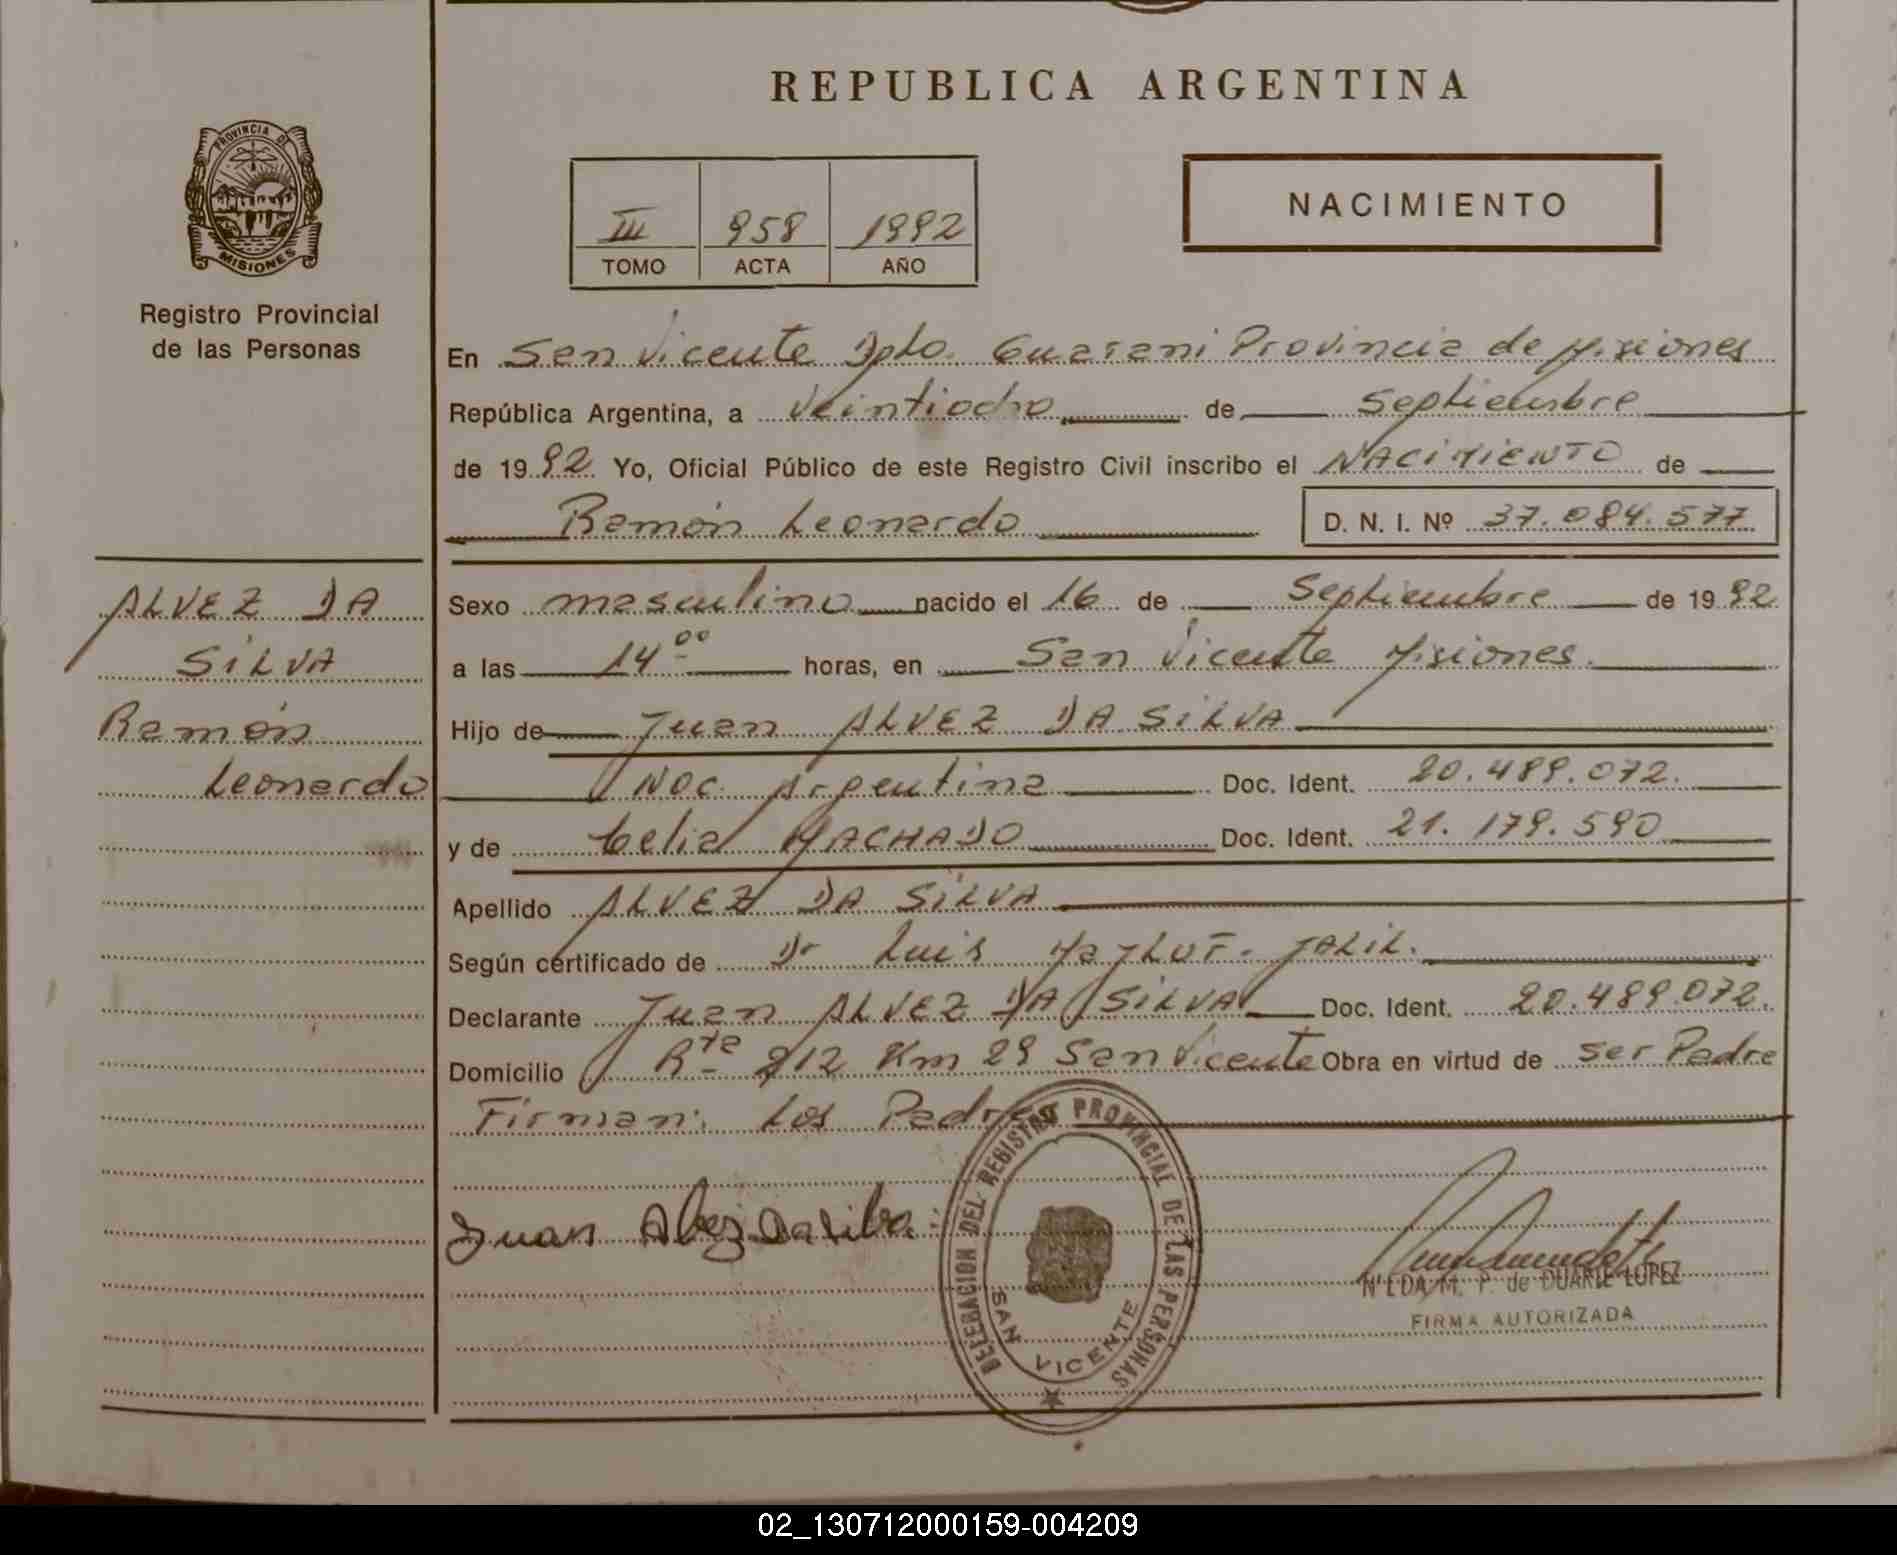 REPUBLICA ARGENTINA
PROVINCIA DE
MISIONES
Registro Provincial
de las Personas
III 958 1992
TOMO ACTA AÑO
NACIMIENTO
En San Vicente Dpto. Guarani Provincia de Misiones
República Argentina, a Veintiocho de Septiembre
de 1992 Yo, Oficial Público de este Registro Civil inscribo el NACIMIENTO de
Ramón Leonardo D. N. I. Nº 37.084.577
ALVEZ DA
SILVA
Ramón
Leonardo
Sexo masculino nacido el 16 de Septiembre de 1992
a las 14 00 horas, en San Vicente Misiones.
Hijo de Juan ALVEZ DA SILVA
Nac. Argentina Doc. Ident. 20.489.072.
y de Celia MACHADO Doc. Ident. 21.179.590
Apellido ALVEZ DA SILVA
Según certificado de Dr Luis JALIL.
Declarante Juan ALVEZ DA SILVA Doc. Ident. 20.489.072.
Domicilio Rta 212 Km 29 San Vicente Obra en virtud de ser Padre
Firman: Los Padres
Juan Alvez Da Silva
DELEGACION DEL REGISTRO PROVINCIAL DE LAS PERSONAS
SAN VICENTE
NELDA M. P. de DUARTE LOPEZ
FIRMA AUTORIZADA
02_130712000159-004209